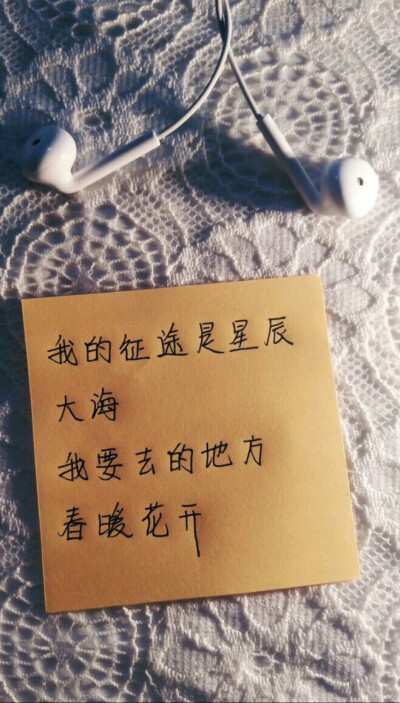 我的征途是星辰
大海
我要去的地方
春暖花开